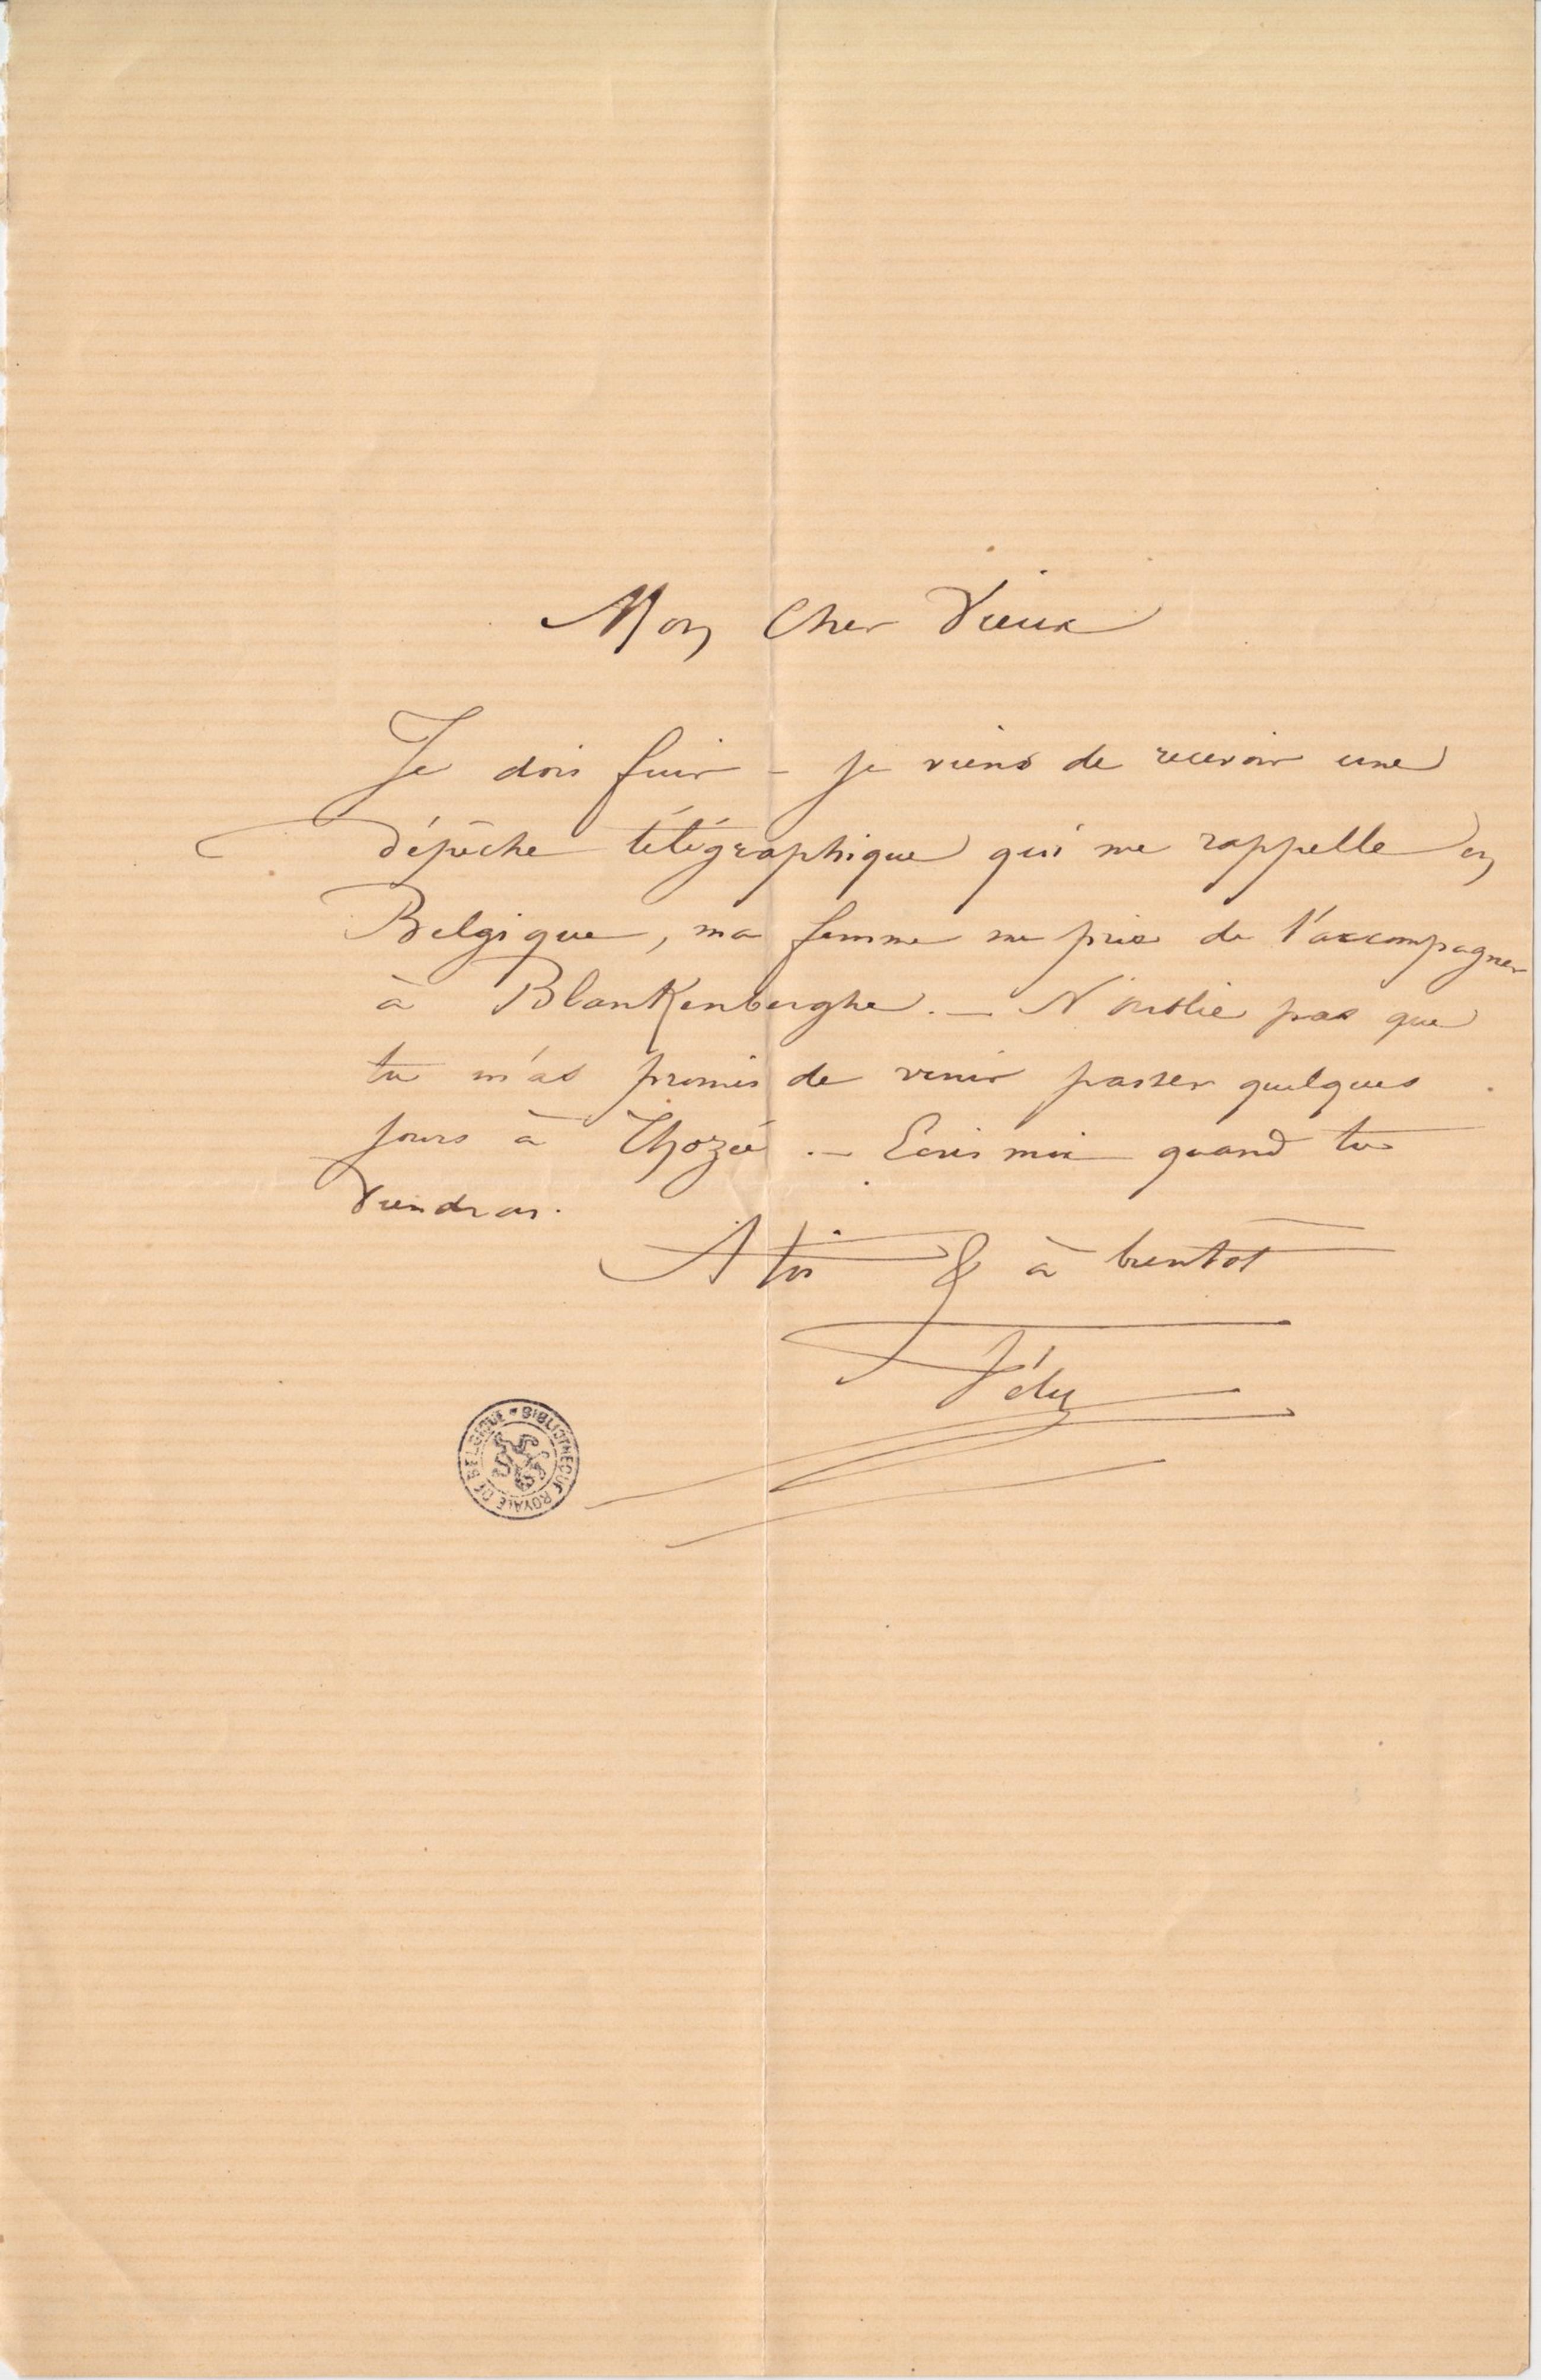 Mon Cher Vieux
Je dois fuir – je viens de recevoir une
dépêche télégraphique qui me rappelle en
Belgique, ma femme me prie de l'accompagner
à Blankenberghe. – N'oublie pas que
tu m'as promis de venir passer quelques
jours à Thozée. – Ecris moi quand tu
viendras.
A toi & à bientot
Fély
BIBLIOTHEQUE ROYALE DE BELGIQUE